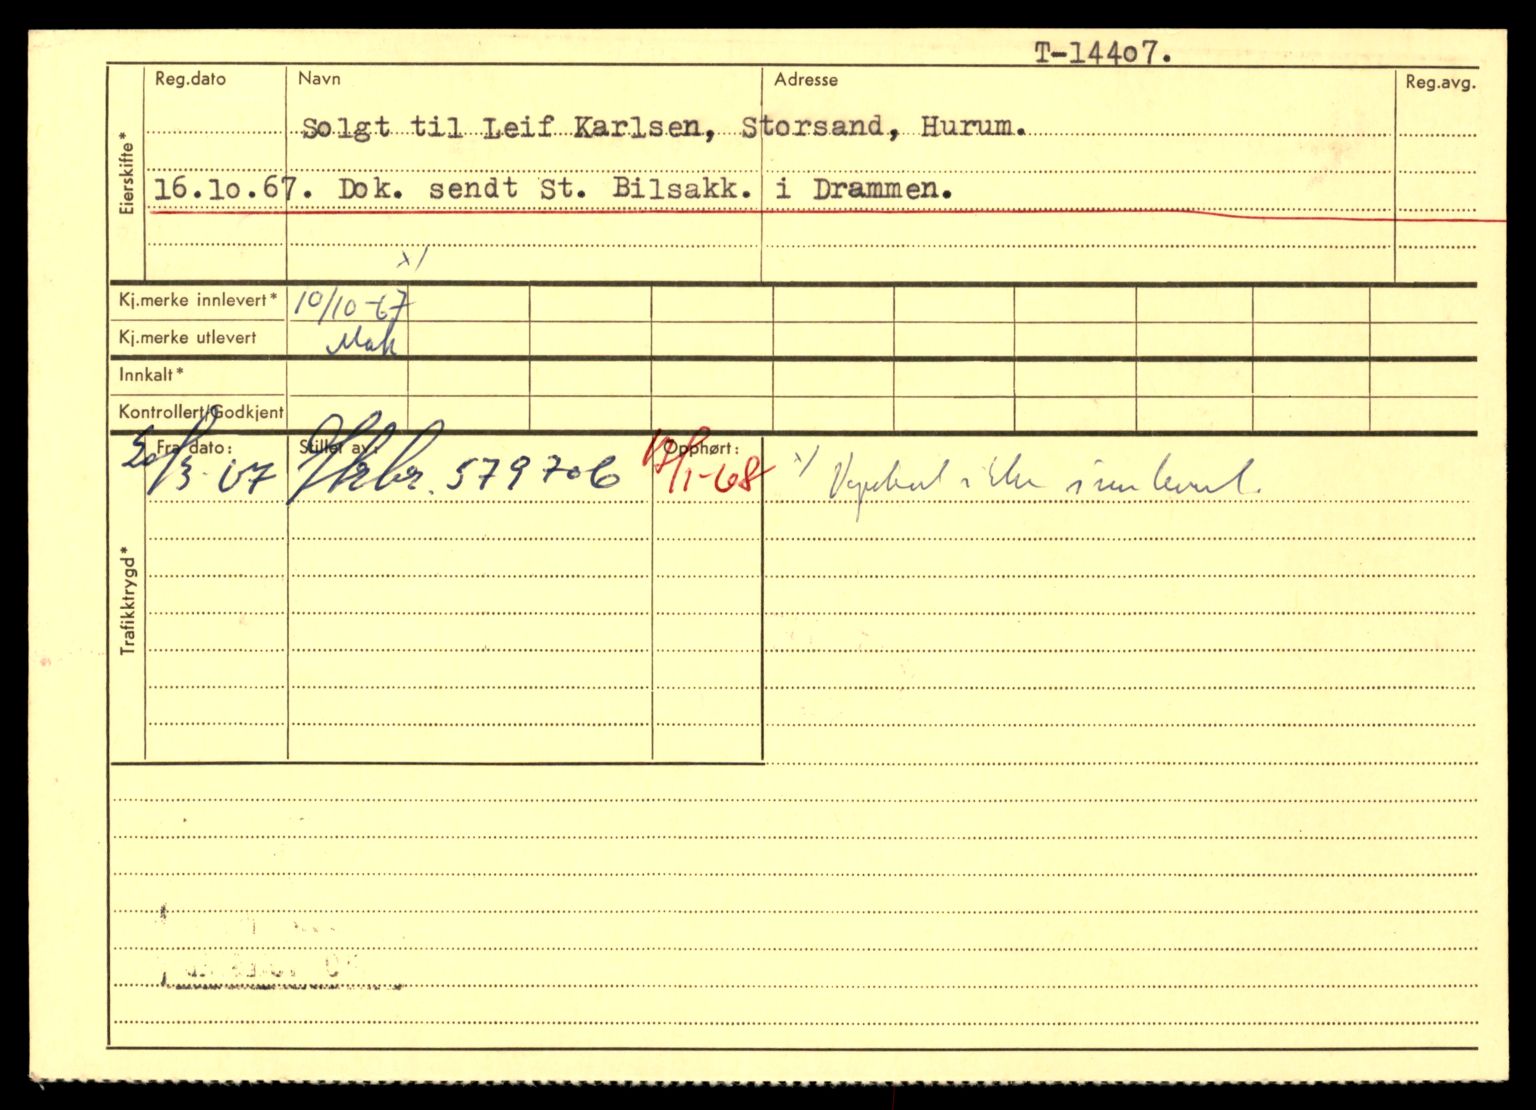 T-14407.
Reg.dato Navn Adresse Reg.avg.
Eierskifte*
Solgt til Leif Karlsen, Storsand, Hurum.
16.10.67. Dok. sendt St. Bilsakk. i Drammen.
x/
Kj.merke innlevert* 10/10-67
Kj.merke utlevert
Innkalt*
Kontrollert/Godkjent
Trafikktrygd*
Fra dato: Stillet av: Opphørt:
20/3-67 579706 /1-68 x/ Vognkort ikke innlevert.